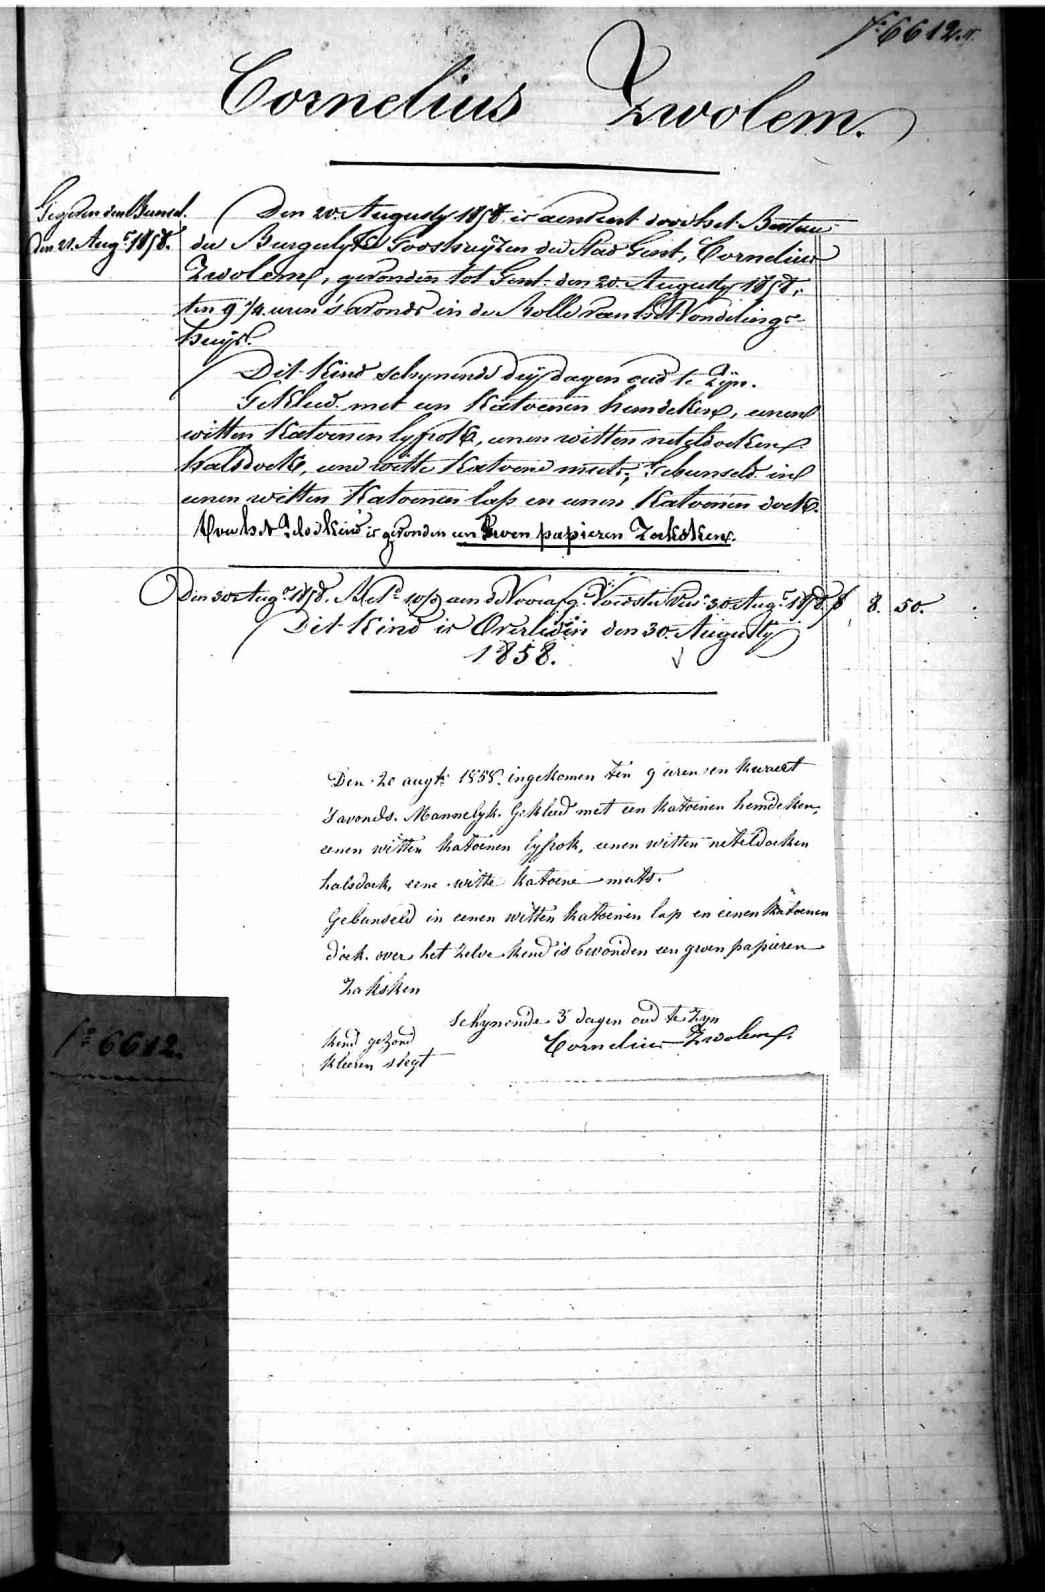 Fo. 6612.
Cornelius Zwolem.
Gegeven den Bunsel.
den 21. Augt. 1858.
Den 20. Augusty 1858. is aenveert door het Bestuer
der Burgelyke Godshuyzen der Stad Gent, Cornelius
Zwolem, gevonden tot Gent. den 20. Augusty 1858,
ten 9 1/4 uren 's avonds in de Rolle van het Vondelings-
huys.
Dit Kind schynende dry dagen oud te zyn.
Gekleed met een Katoenen hemdeken, eenen
witten Katoenen lyfrok, eenen witten neteldoeken
halsdoek, eene witte Katoene muts; Gebunseld in
eenen witten Katoenen lap en eenen Katoenen doek.
Over het zelve Kind is gevonden een groen papieren Zaksken.
Den 30 Augt. 1858. aen de Voedster 30 Augt. 1858. f 8. 50.
Dit Kind is Overleden den 30. Augusty
1858.
Den 20 augt. 1858. ingekomen ten 9 uren en kwaert
s'avonds. Mannelyk. Gekleed met een katoenen hemdeken,
eenen witten katoenen lyfrok, eenen witten neteldoeken
halsdoek, eene witte katoene muts.
Gebunseld in eenen witten katoenen lap en eenen katoenen
doek. over het zelve kend is bevonden een groen papieren
zaksken
schynende 3 dagen oud te zyn
kend gezond
Cornelius Zwolem.
kleeren slegt
Fo. 6612.